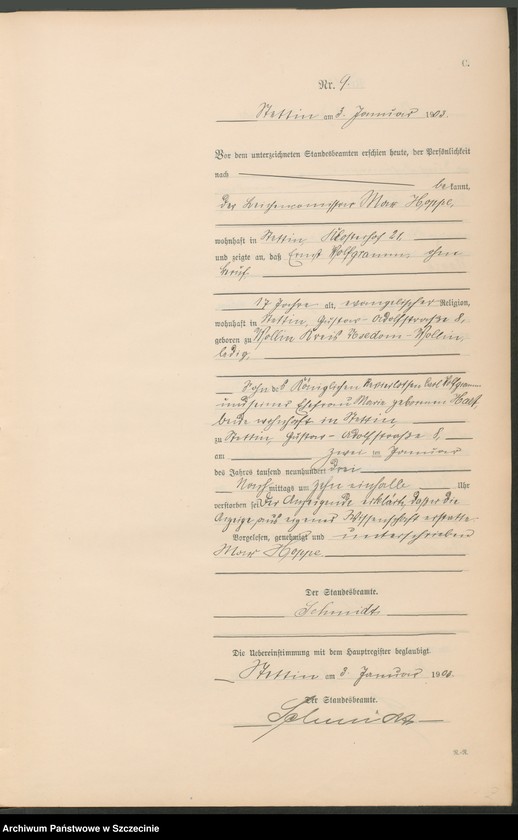 C.
Nr. 9.
Stettin am 3. Januar 1903.
Vor dem unterzeichneten Standesbeamten erschien heute, der Persönlichkeit
nach bekannt,
der Leichenkommissar Max Hoppe,
wohnhaft in Stettin Klosterhof 21,
und zeigte an, daß Ernst Wolfgramm, ohne
Beruf,
17 Jahre alt, evangelischer Religion,
wohnhaft in Stettin, Gustav-Adolfstraße 8,
geboren zu Wollin Kreis Usedom-Wollin,
ledig,
Sohn des Königlichen Revierlotsen Carl Wolfgramm
und seiner Ehefrau Marie geborenen
beide wohnhaft in Stettin,
zu Stettin, Gustav-Adolfstraße 8,
am zwei ten Januar
des Jahres tausend neunhundert drei
Nachmittags um zehn einhalb Uhr
verstorben sei. Der Anzeigende erklärte, daß er die
Anzeige aus eigener Wissenschaft erstatte.
Vorgelesen, genehmigt und unterschrieben
Max Hoppe.
Der Standesbeamte.
Schmidt.
Die Uebereinstimmung mit dem Hauptregister beglaubigt
Stettin am 3. Januar 1903.
Der Standesbeamte.
Schmidt
R.-R.
Archiwum Państwowe w Szczecinie